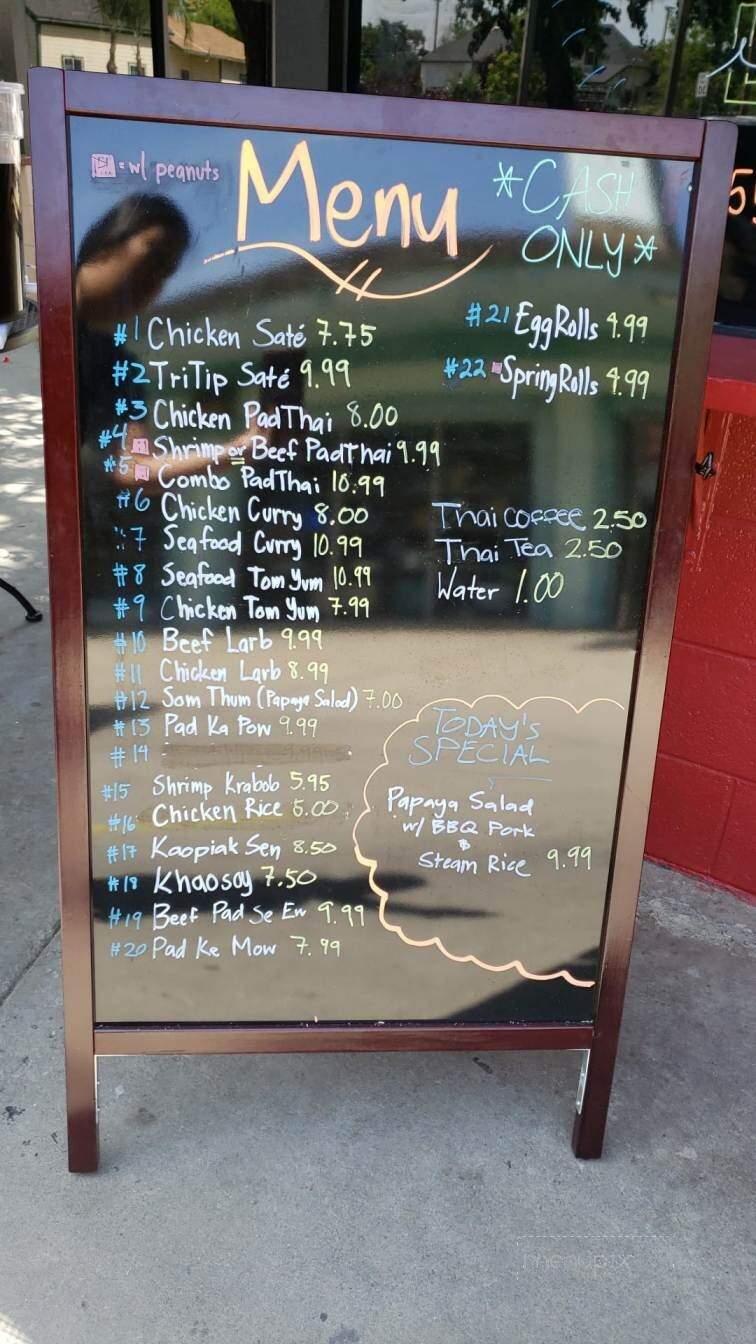 = w/ peanuts
Menu
*CASH
ONLY*
#1 Chicken Saté 7.75
#2 TriTip Saté 9.99
#3 Chicken PadThai 8.00
#4 Shrimp or Beef PadThai 9.99
#5 Combo PadThai 10.99
#6 Chicken Curry 8.00
#7 Seafood Curry 10.99
#8 Seafood Tom Yum 10.99
#9 Chicken Tom Yum 7.99
#10 Beef Larb 9.99
#11 Chicken Larb 8.99
#12 Som Thum (Papaya Salad) 7.00
#13 Pad Ka Pow 9.99
#14
#15 Shrimp Krabob 5.95
#16 Chicken Rice 5.00
#17 Kaopiak Sen 8.50
#18 Khaosoy 7.50
#19 Beef Pad Se Ew 9.99
#20 Pad Ke Mow 7.99
#21 EggRolls 4.99
#22 SpringRolls 4.99
Thai Coffee 2.50
Thai Tea 2.50
Water 1.00
TODAY'S
SPECIAL
Papaya Salad
w/ BBQ Pork
&
Steam Rice 9.99
menupix